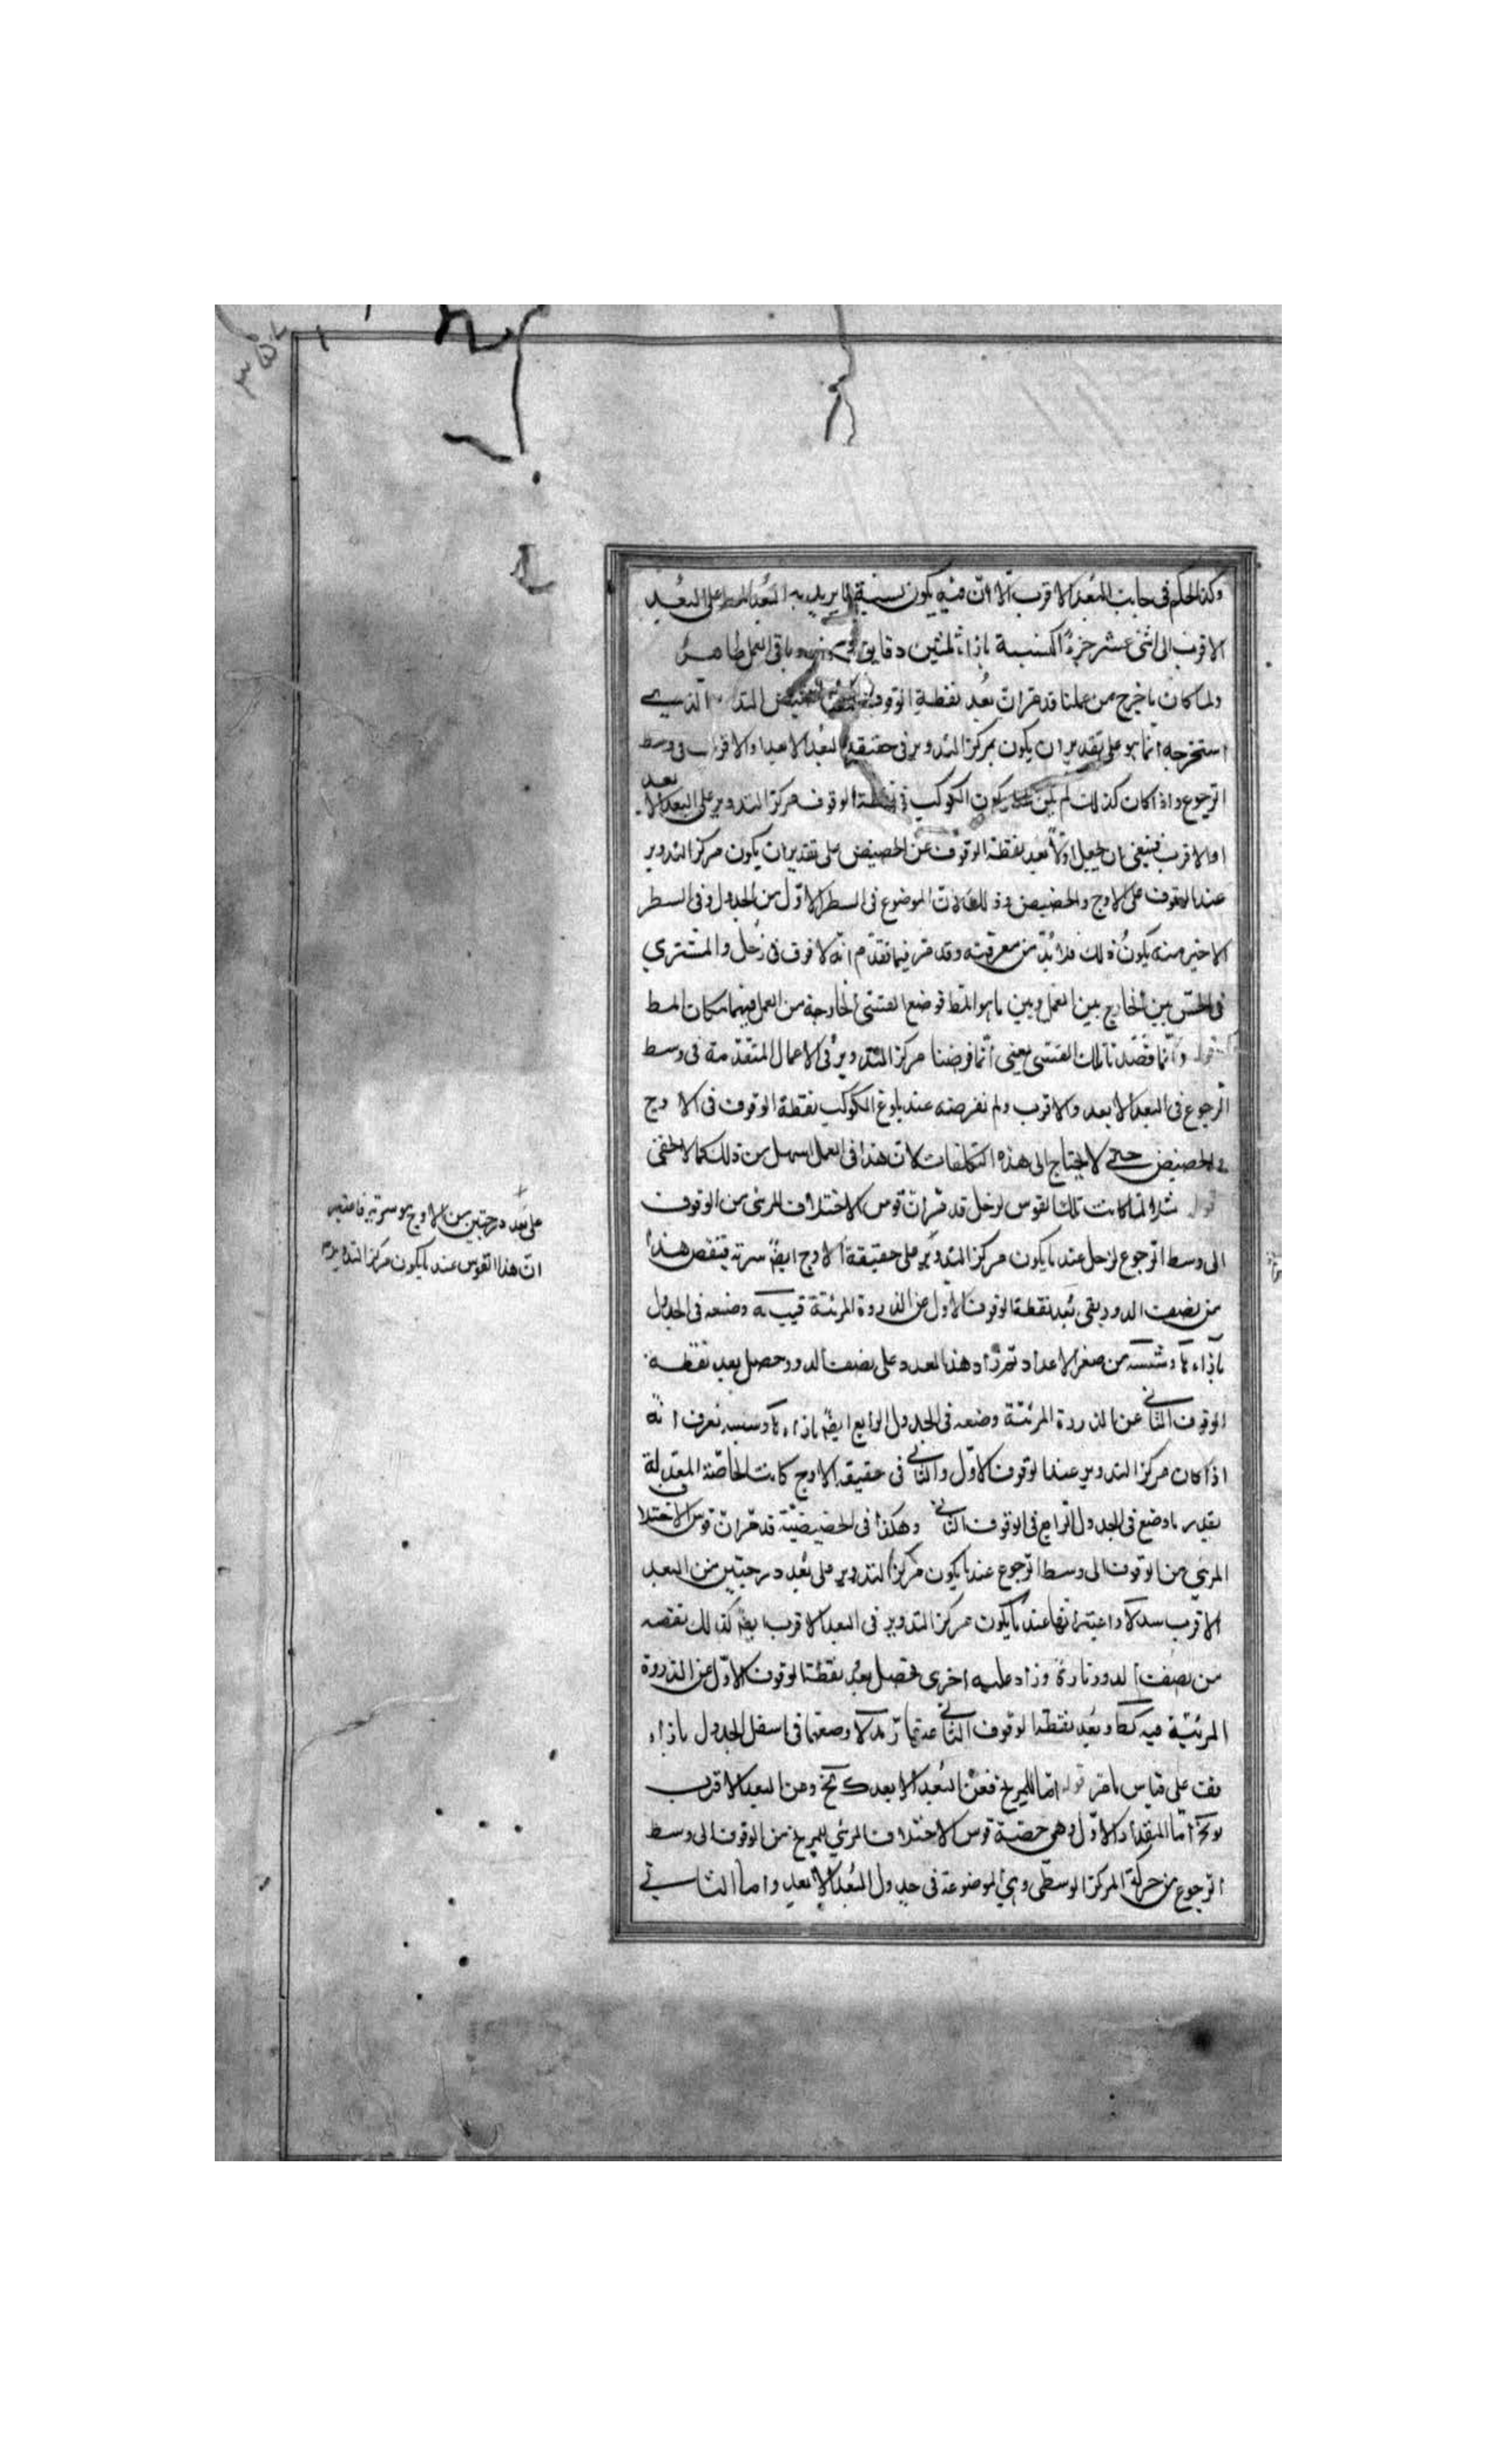 وكذا الحكم فى جانب البُعد الاقرب الّا انّ فيه يكون نسبة ما يزيد به البُعد الاوسط على البُعد
الاقرب الى اثنى عشر جزءًا كنسبة بازاء ثلثين دقايق وباقى العمل ظاهر
ولما كان ما خرج من عملنا قد مرّ ان بُعد نقطة الوقوف الحضيض الذى
استخرجه انما هو على تقدير ان يكون مركز التدوير فى حقيقة البُعد الابعد او الاقرب فى وسط
الرجوع واذا كان كذلك لم يكن عند كون الكوكب فى نقطة الوقوف مركز التدوير على البعد الابعد
او الاقرب فينبغى ان يجعل اولًا بُعد نقطة الوقوف عن الحضيض على تقدير ان يكون مركز التدوير
عند الوقوف على الاوج والحضيض وذلك لانّ الموضوع فى السطر الاوّل من الجدول وفى السطر
الاخير منه يكون ذلك فلا بُدّ من معرفته وقد مرّ فيما تقدّم انّه لا فرق فى زُحل والمشترى
فى الحسّ بين الخارج بين العمل وبين ما هو الط فوضع القسىّ الخارجة من العمل فيهما مكان الط
قوله وانّما قصدنا تلك القسى يعنى انّما فرضنا مركز التدوير فى الاعمال المتقدّمة فى وسط
الرجوع فى البعد الابعد والاقرب ولم نفرضه عند بلوغ الكوكب نقطة الوقوف فى الاوج
والحضيض حتى لا يحتاج الى هذه التكلفات لانّ هذا فى العمل اسهل من ذلك كما لا يخفى
قوله مثلا لمّا كانت تلك القوس لزحل قد مرّ انّ قوس الاختلاف المرئى من الوقوف
الى وسط الرجوع لزحل عند ما يكون مركز التدوير على حقيقة الاوج ايضًا سرته فينقص هذا
من نصف الدور ويبقى بُعد نقطة الوقوف الاوّل عن الذروة المرئيّة قيب مه وضعه فى الجدول
بازاء و شسه من صغر الاعداد ثم زاد هذا العدد على نصف الدور وحصل بعد نقطة
الوقوف الثانى عن الذروة المرئيّة وضعه فى الجدول الرابع ايضًا بازاء و شسه يعرف انّه
اذا كان مركز التدوير عند الوقوف الاوّل والثانى فى حقيقة الاوج كانت الخاصّة المعدّلة
بقدر ما وضع فى الجدول الرابع فى الوقوف الثانى وهكذا فى الحضيضيّة قد مرّ انّ قوس الاختلاف
المرئى من الوقوف الى وسط الرجوع عند ما يكون مركز التدوير على بُعد درجتين من البعد
الاقرب سد لا واعتبر انها عند ما يكون مركز التدوير فى البعد الاقرب ايضًا كذلك نقصه
من نصف الدور تارة وزاد عليه اخرى فحصل بعد نقطة الوقوف الاوّل عن الذروة
المرئيّة فيه وبُعد نقطة الوقوف الثانى عنها وضعهما فى اسفل الجدول بازاء
قف على قياس ما مرّ قوله امّا للمريخ فعن البُعد الابعد وعن البعد الاقرب
امّا المقدار الاوّل وهى حصّة قوس الاختلاف المرئى للمريخ من الوقوف الى وسط
الرجوع من حركة المركز الوسطى وهى الموضوعة فى جدول البُعد الابعد واما الثانى
على بُعد درجتين من الاوج هو سرته فاعتبر
انّ هذا القوس عند ما يكون مركز التدوير